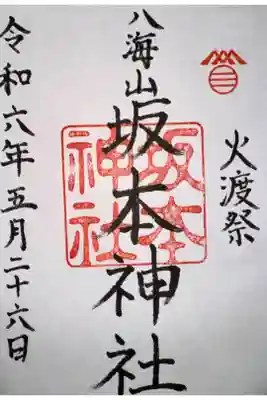 火渡祭
八海山坂本神社
坂本
神社
令和六年五月二十六日